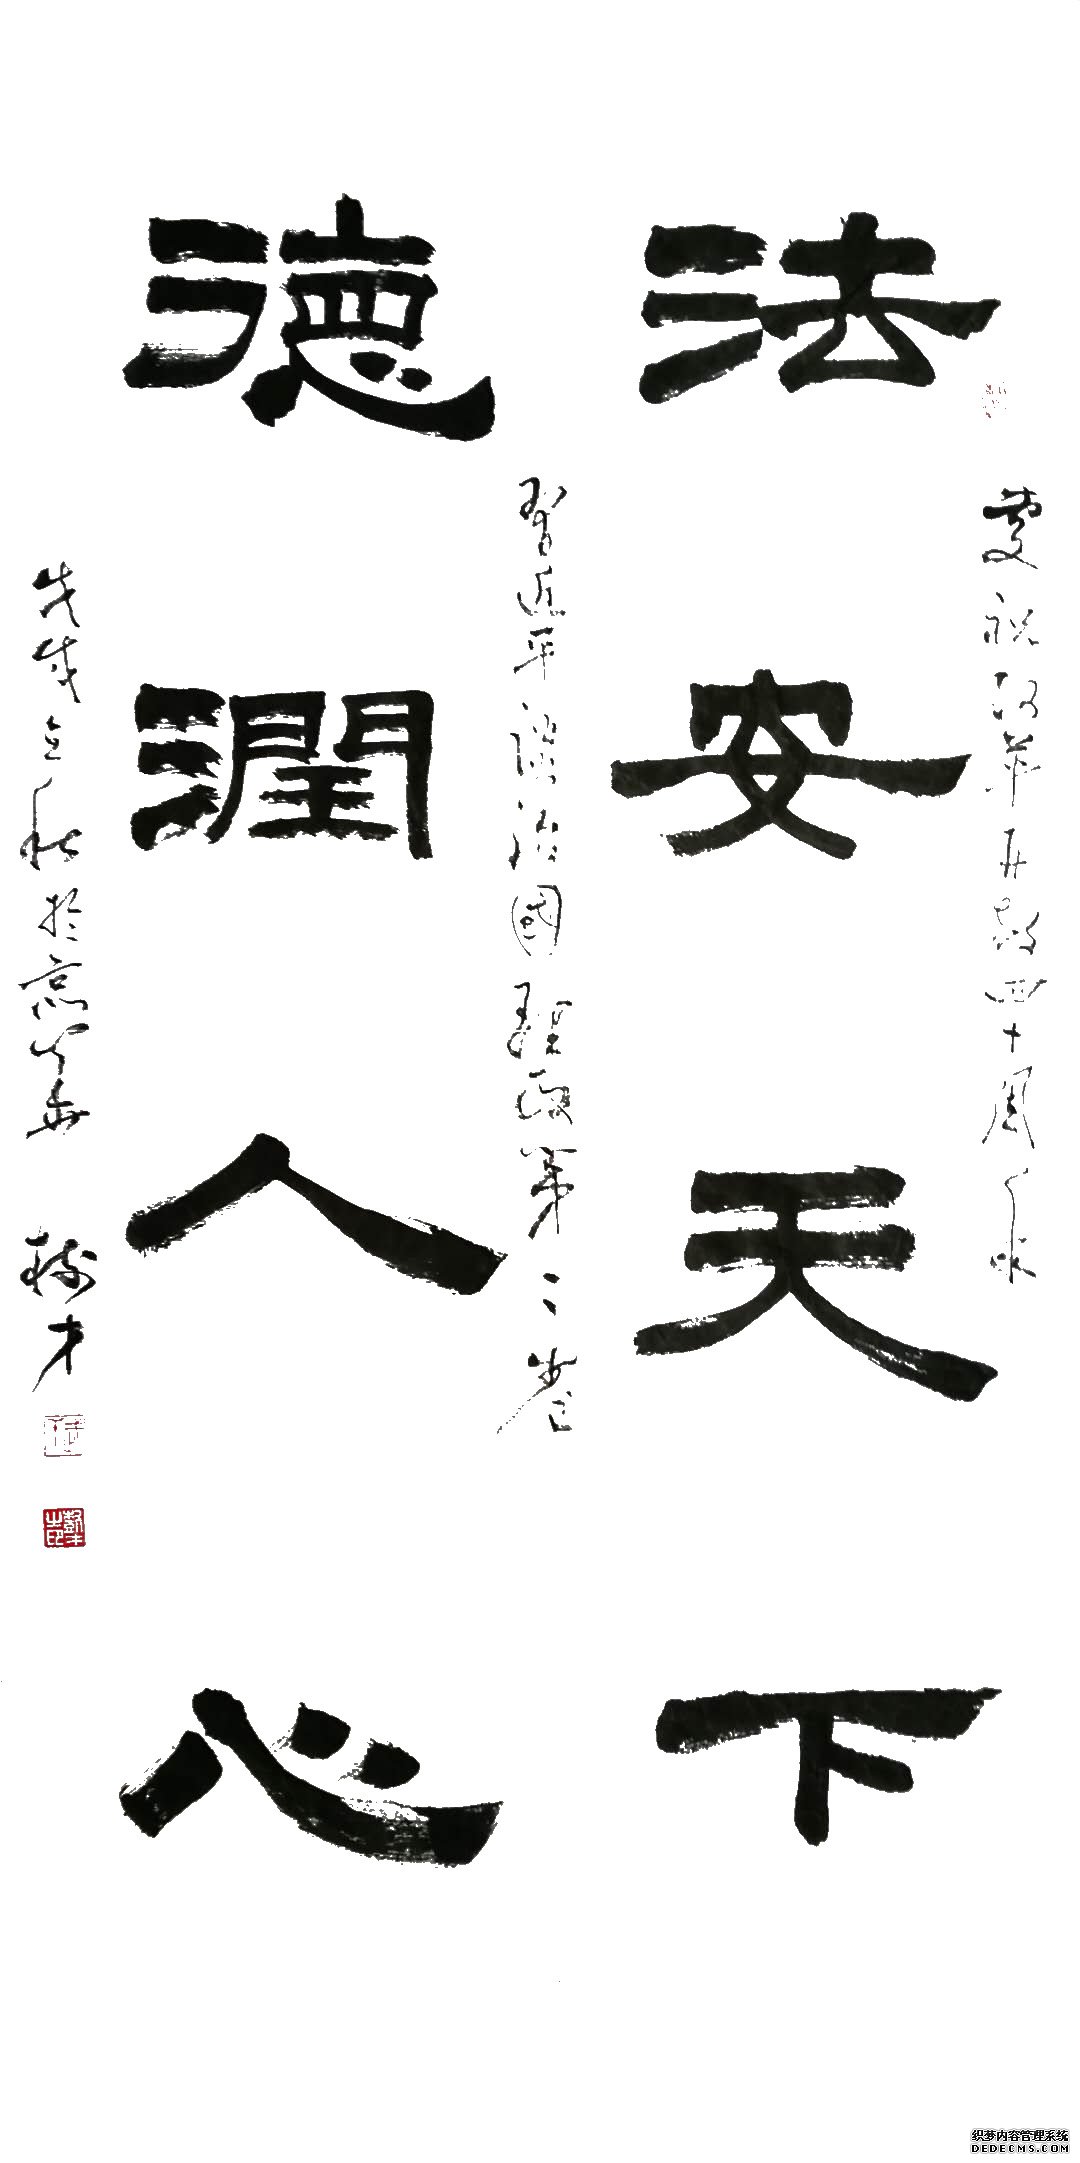 法安天下
德润人心
慶祝改革开放四十周年
習近平談治國理政第二卷
戊戌立秋於京華
树才
织梦内容管理系统
DEDECMS.COM